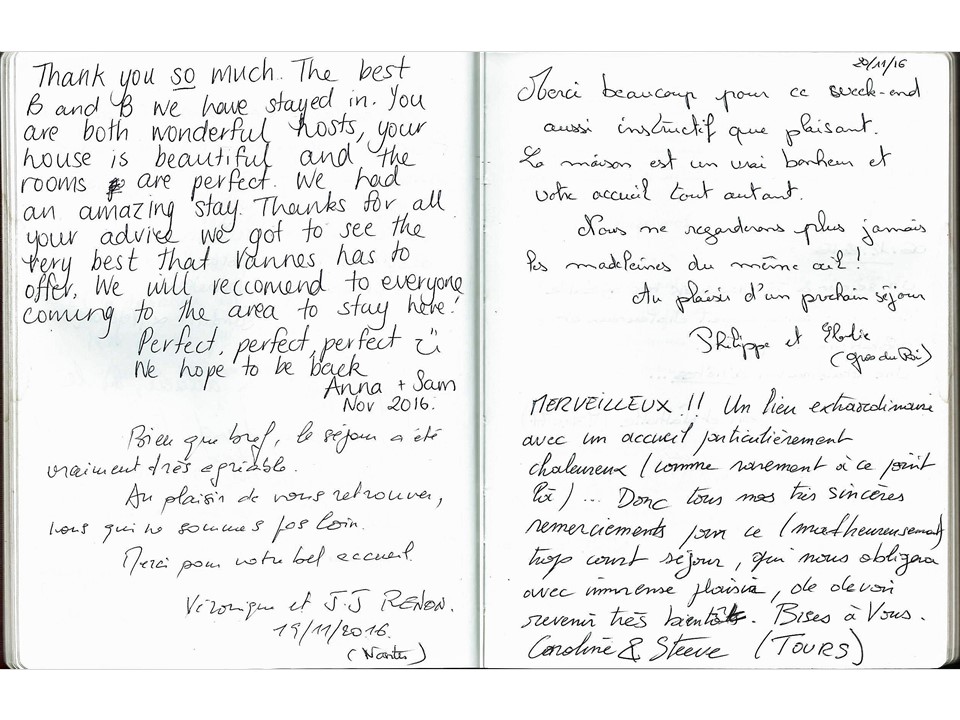 Thank you so much. The best
B and B we have stayed in. You
are both wonderful hosts, your
house is beautiful and the
rooms are perfect. We had
an amazing stay. Thanks for all
your advice we got to see the
very best that Vannes has to
offer. We will reccomend to everyone
coming to the area to stay here!
Perfect, perfect, perfect
We hope to be back
Anna + Sam
Nov 2016.
Bien que bref, le séjour a été
vraiment très agréable.
Au plaisir de vous retrouver,
nous qui ne sommes pas loin.
Merci pour votre bel accueil.
Véronique et J.J RENON.
19/11/2016.
(Nantes)
20/11/16
Merci beaucoup pour ce week-end
aussi instructif que plaisant.
La maison est un vrai bonheur et
votre accueil tout autant.
Nous ne regarderons plus jamais
les madeleines du même œil!
Au plaisir d'un prochain séjour
Philippe et Elodie
(Grau du Roi)
MERVEILLEUX !! Un lieu extraordinaire
avec un accueil particulièrement
chaleureux (comme rarement à ce point
là)... Donc tous nos très sincères
remerciements pour ce (malheureusement)
trop court séjour, qui nous obligera
avec immense plaisir, de devoir
revenir très bientôt. Bises à Vous.
Caroline & Steeve (TOURS)